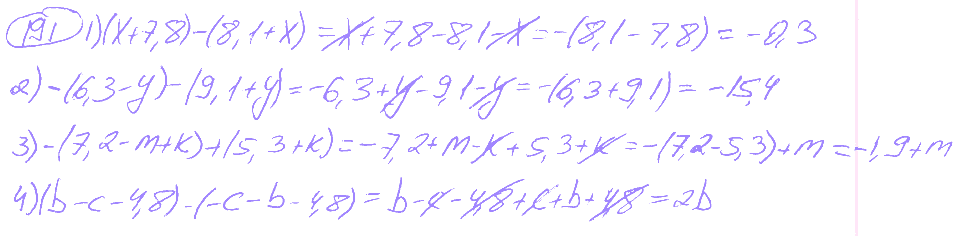 191 1) (x+7,8)-(8,1+x) = x+7,8-8,1-x = -(8,1-7,8) = -0,3
2) -(6,3-y)-(9,1+y) = -6,3+y-9,1-y = -(6,3+9,1) = -15,4
3) -(7,2-m+k)+(5,3+k) = -7,2+m-k+5,3+k = -(7,2-5,3)+m = -1,9+m
4) (b-c-4,8)-(-c-b-4,8) = b-c-4,8+c+b+4,8 = 2b